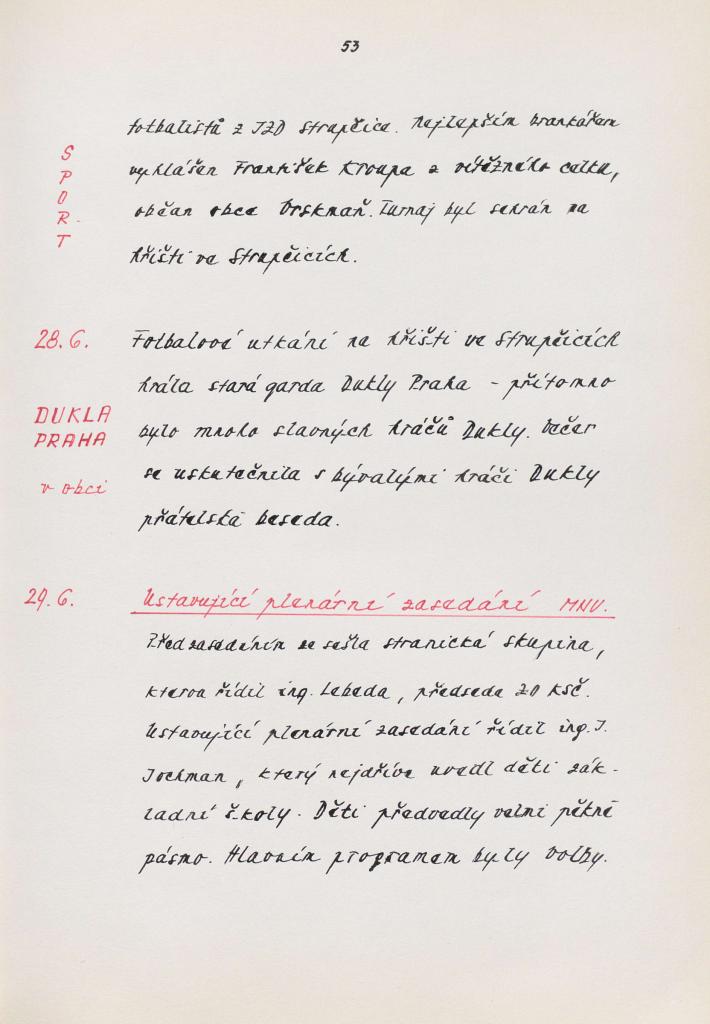 53
fotbalistů z JZD Strupčice. Nejlepším brankářem
S
P
O
R
T
vyhlášen František Kroupa z vítězného celku,
občan obce Vrskmaň. Turnaj byl sehrán na
hřišti ve Strupčicích.
28.6.
Fotbalové utkání na hřišti ve Strupčicích
hrála stará garda Dukly Praha - přítomno
DUKLA
PRAHA
v obci
bylo mnoho slavných hráčů Dukly. Večer
se uskutečnila s bývalými hráči Dukly
přátelská beseda.
29.6.
Ustavující plenární zasedání MNV.
Před zasedáním se sešla stranická skupina,
kterou řídil ing. Lebeda, předseda ZO KSČ.
Ustavující plenární zasedání řídil ing. J.
Jochman, který nejdříve uvedl děti zák-
ladní školy. Děti předvedly velmi pěkné
pásmo. Hlavním programem byly volby.